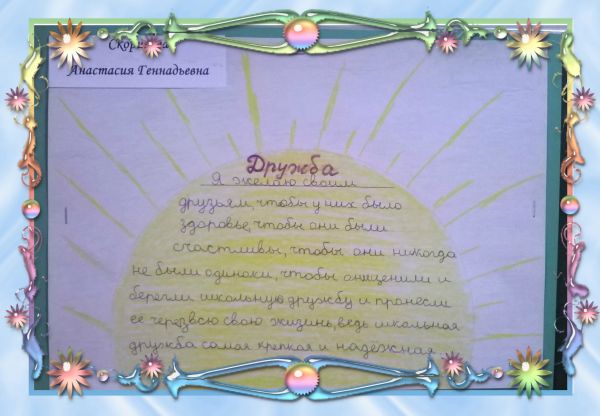 Анастасия Геннадьевна
Дружба
Я желаю своим
друзьям, чтобы у них было
здоровье, чтобы они были
счастливы, чтобы они никогда
не были одиноки, чтобы они ценили и
берегли школьную дружбу и пронесли
её через всю свою жизинь, ведь школьная
дружба самая крепкая и надёжная.